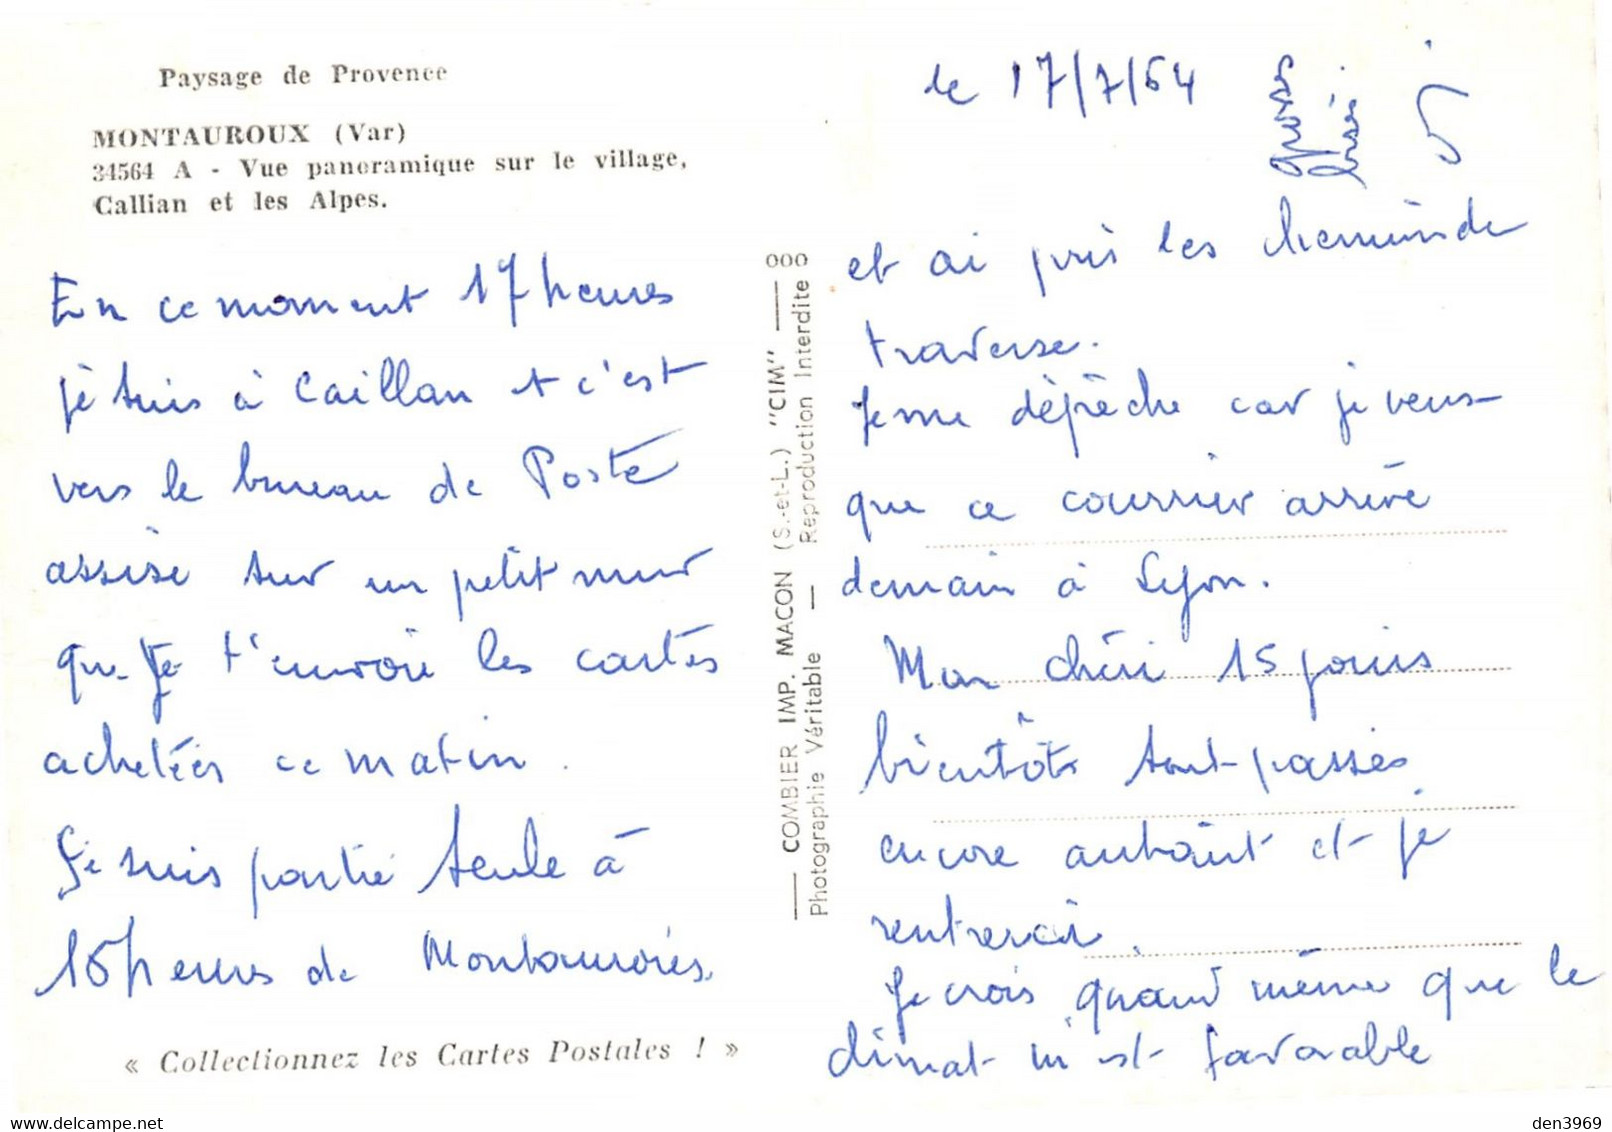 Paysage de Provence
MONTAUROUX (Var)
34564 A - Vue panoramique sur le village,
Callian et les Alpes.
En ce moment 17 heures
je suis à Caillan et c'est
vers le bureau de Poste
assise sur un petit mur
que je t'envoie les cartes
achetées ce matin.
Je suis partie seule à
16 heures de
« Collectionnez les Cartes Postales ! »
COMBIER IMP. MACON (S.-et-L.) "CIM"
Photographie Véritable — Reproduction Interdite
000
le 17/7/64
5
et ai pris les chemins de
traverse.
Je me dépêche car je veux
que ce courrier arrive
demain à Lyon.
Mon chéri 15 jours
bientôt sont passés
encore autant et je
rentrerai.
Je crois quand même que le
climat m'est favorable
den3969
www.delcampe.net